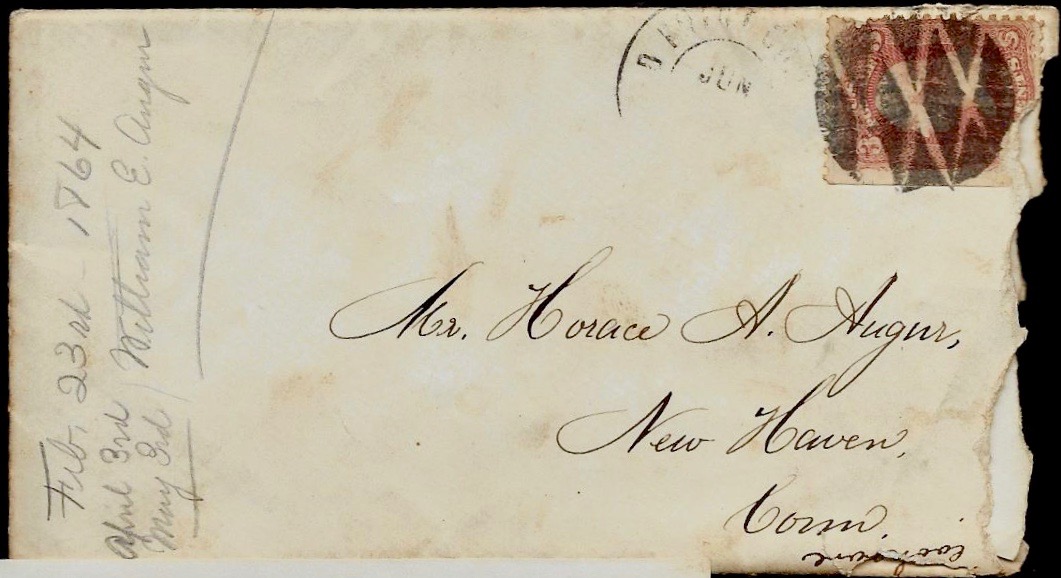 JUN
Mr. Horace A. Augur,
New Haven,
Conn.
Feb, 23rd - 1864
April 3rd
May 3rd
William E. Augur